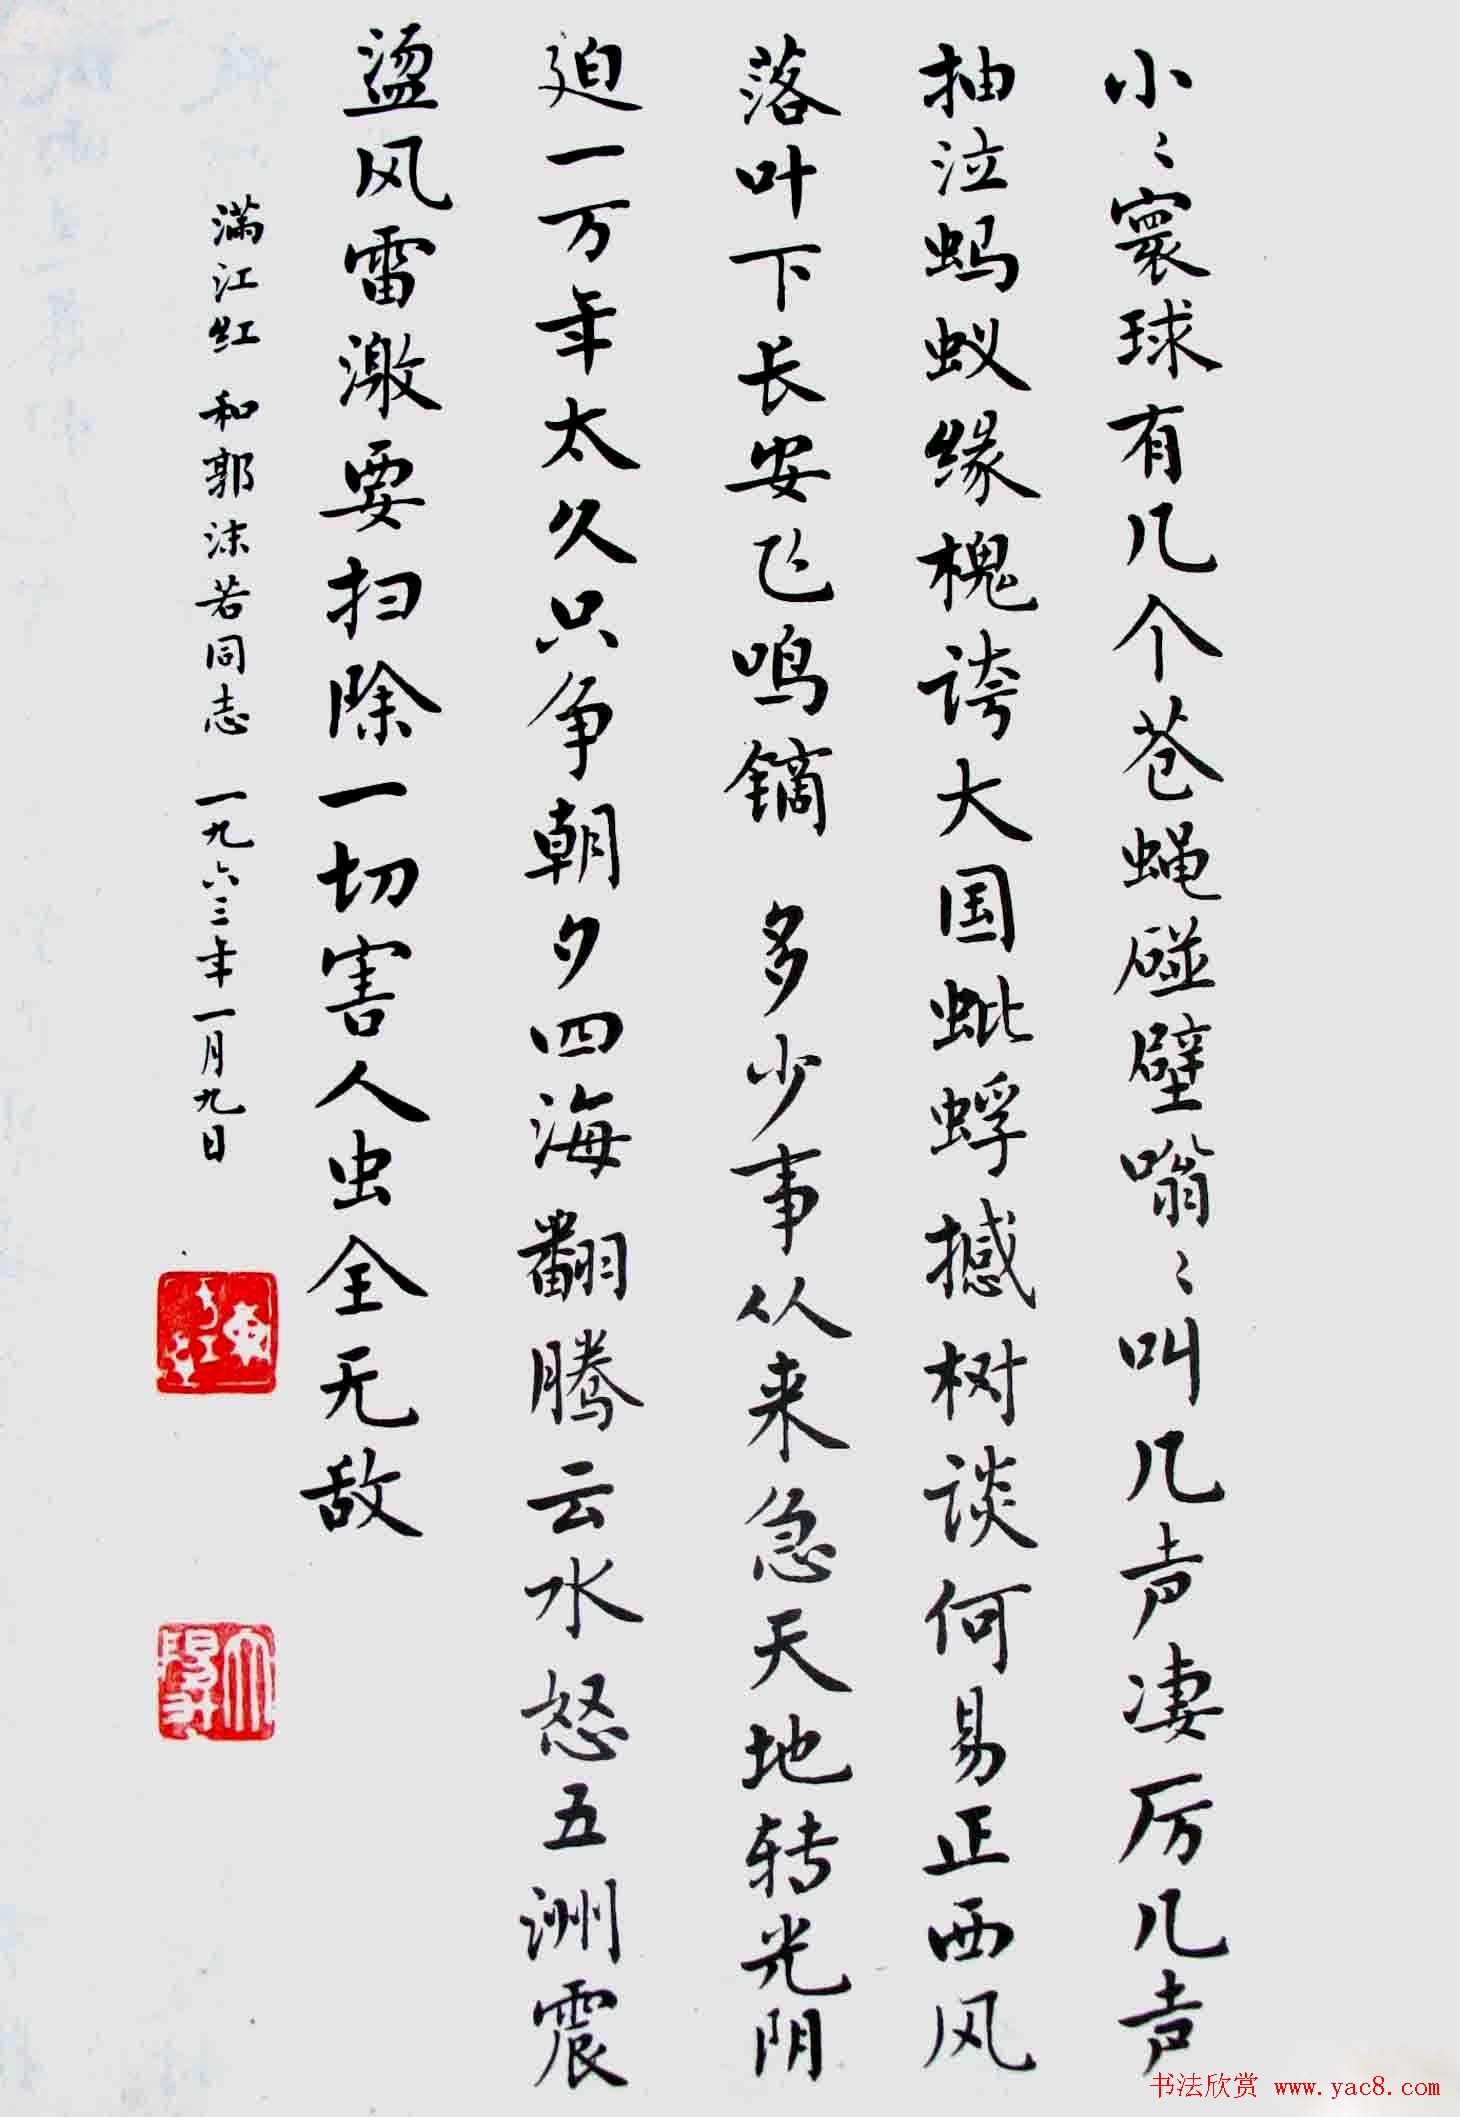 小〻寰球有几个苍蝇碰壁嗡〻叫几声凄厉几声
抽泣蚂蚁缘槐誇大国蚍蜉撼树谈何易正西风
落叶下长安飞鸣镝 多少事从来急天地转光阴
廹一万年太久只争朝夕四海翻腾云水怒五洲震
盪风雷激要扫除一切害人虫全无敌
满江红 和郭沫若同志 一九六三年一月九日
书法欣赏 www.yac8.com